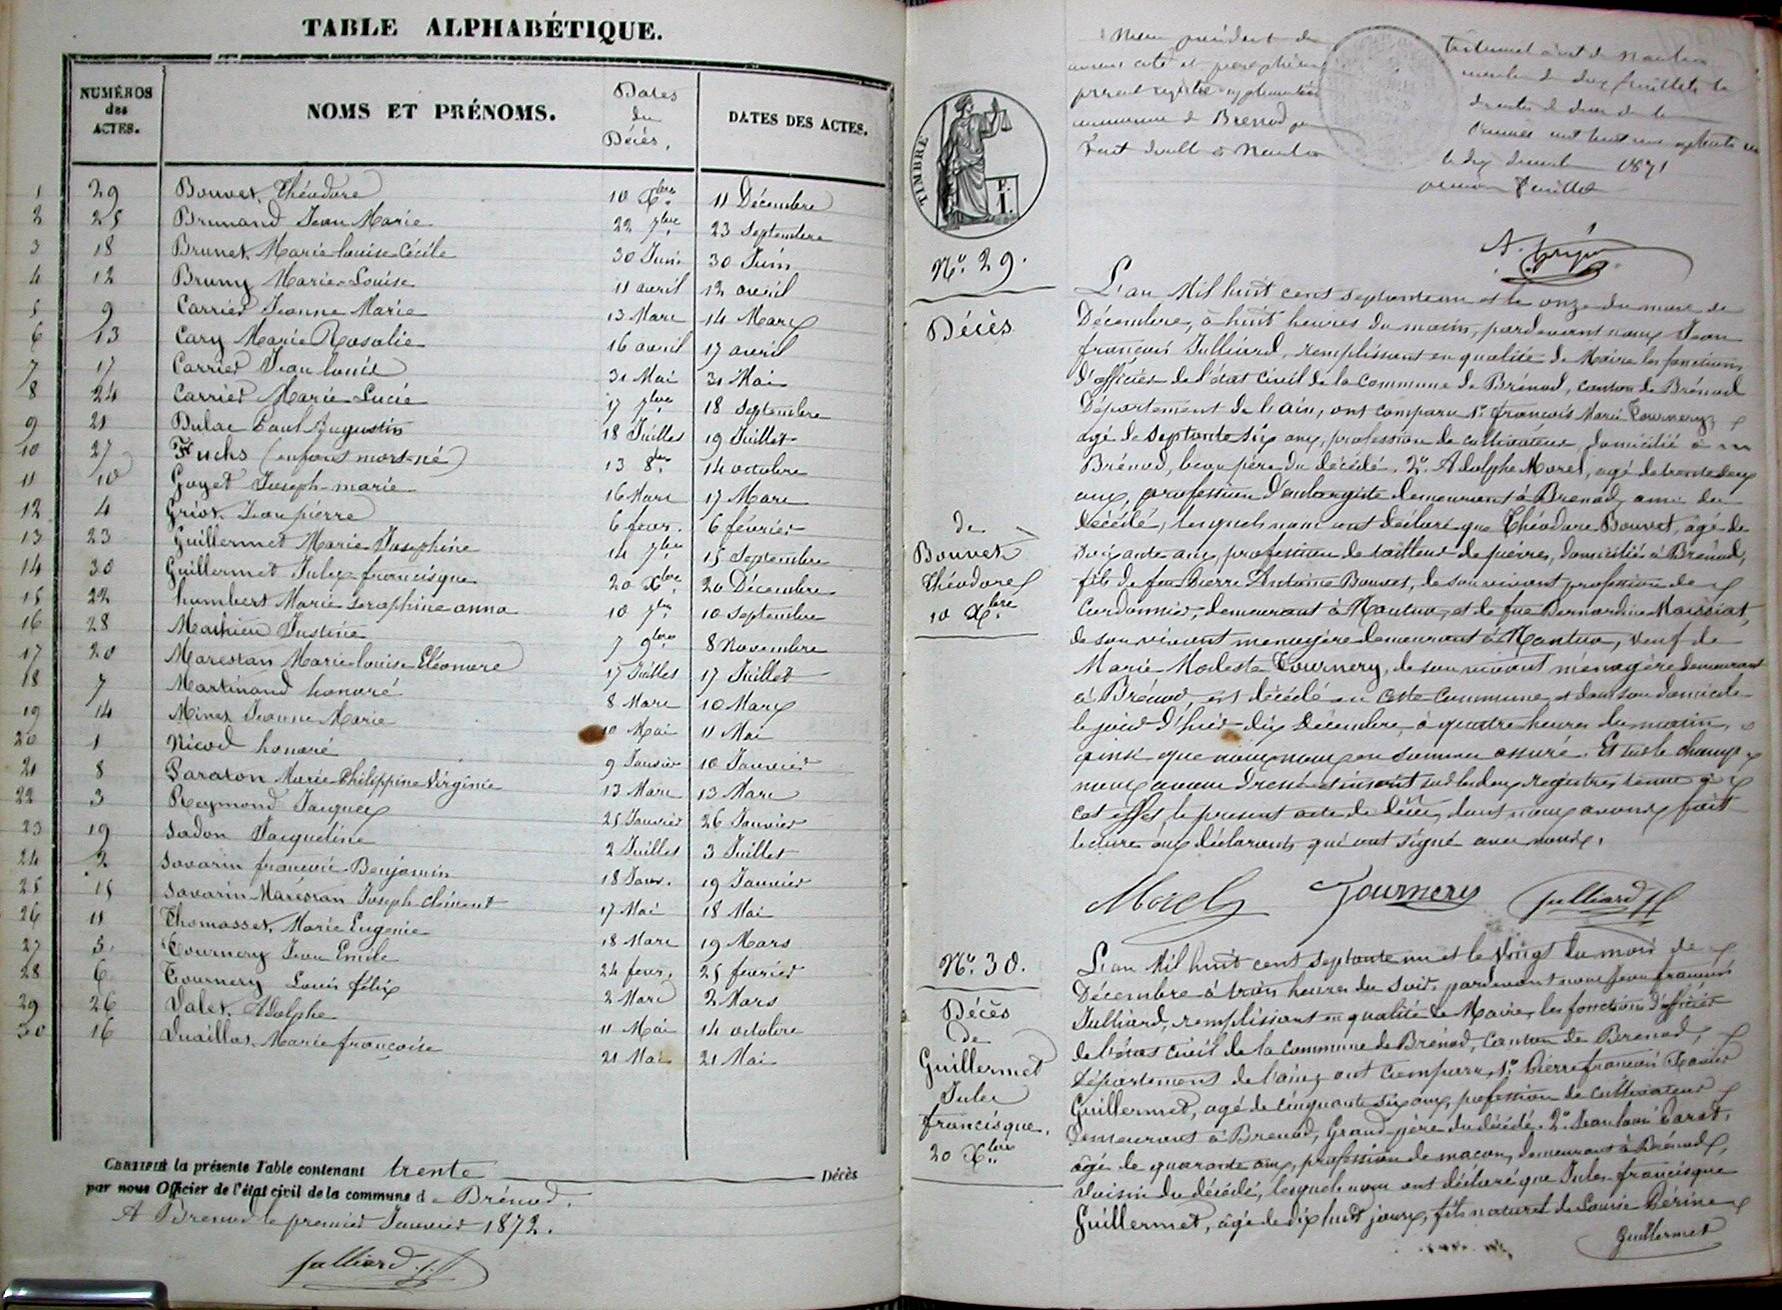 TABLE ALPHABÉTIQUE.
NUMÉROS des ACTES. NOMS ET PRÉNOMS. Dates du Décès. DATES DES ACTES.
1 29 Bouvet Théodore 10 Xbre 11 Décembre
2 25 Brunand Jean Marie 22 7bre 23 Septembre
3 18 Brunet Marie louise Cécile 30 Juin 30 Juin
4 12 Bruny Marie-Louise 11 avril 12 avril
5 9 Carrier Jeanne Marie 13 Mars 14 Mars
6 13 Cary Marie Rosalie 16 avril 17 avril
7 17 Carrier Jean louis 31 Mai 31 Mai
8 24 Carrier Marie-Lucie 17 7bre 18 Septembre
9 21 Dulac Paul Augustin 18 Juillet 19 Juillet
10 27 Fuchs (enfant mort-né) 13 8bre 14 octobre
11 10 Goyet Joseph-marie 16 Mars 17 Mars
12 4 Griot Jean pierre 6 fevr. 6 février
13 23 Guillermet Marie Josephine 14 7bre 15 Septembre
14 30 Guillermet Jules francisque 20 Xbre 20 Décembre
15 22 humbert Marie Seraphine anna 10 7bre 10 Septembre
16 28 Mathieu Justine 7 9bre 8 Novembre
17 20 Marestan Marie louise Eléonore 17 Juillet 17 Juillet
18 7 Martinand honoré 8 Mars 10 Mars
19 14 Minet Jeanne Marie 10 Mai 11 Mai
20 1 Nicod honoré 9 Janvier 10 Janvier
21 8 Paraton Marie Philippine Virginie 13 Mars 13 Mars
22 3 Reymond Jacques 25 Janvier 26 Janvier
23 19 Sadon Jacqueline 2 Juillet 3 Juillet
24 2 Savarin françois-Benjamin 18 Janv. 19 Janvier
25 15 Savarin-Marestan Joseph Clément 17 Mai 18 Mai
26 11 Thomasset Marie Eugénie 18 Mars 19 Mars
27 5 Tournery Jean Emile 24 fevr. 25 fevrier
28 6 Tournery Louis félix 2 Mars 2 Mars
29 26 Valet Adolphe 11 Mai 14 octobre
30 16 Vuaillat Marie françoise 21 Mai 21 Mai
CERTIFIÉ la présente Table contenant trente Décès
par nous Officier de l'état civil de la commune de Brénod.
A Brenod le premier Janvier 1872.
Julliard
TIMBRE
F. I.
présent registre
commune de Brenod
1871
premier feuillet
Nº 29.
Décès
de
Bouvet
Théodore
10 Xbre
L'an Mil huit cent septante un et le onze du mois de
Décembre, à huit heures du matin, pardevant nous Jean
françois Julliard, remplissant en qualité de Maire les fonctions
d'officier de l'état civil de la Commune de Brénod, canton de Brénod
Département de l'ain, ont comparu 1º françois Marie Tournery,
agé de septante six ans, profession de cultivateur, domicilié à
Brénod, beau père du décédé. 2º Adolphe Morel, agé de trente deux
ans, profession d'aubergiste demeurant à Brenod, ami du
décédé, lesquels nous ont déclaré que Théodore Bouvet, âgé de
soixante ans, profession de tailleur de pierres, domicilié à Brénod,
fils de feu Pierre Antoine Bouvet, de son vivant profession de
Cordonnier, demeurant à Nantua, et de fue Bernardine Maissiat,
de son vivant menagère demeurant à Nantua, veuf de
Marie Modeste Tournery, de son vivant ménagère demeurant
à Brénod est décédé en cette Commune et dans son domicile
le jour d'hier dix Décembre, à quatre heures du matin,
ainsi que nous nous en sommes assuré. Et sur le champ
nous avons dressé et inscrit sur les deux registres tenus à
cet effet, le présent acte de décès, dont nous avons fait
lecture aux déclarants qui ont signé avec nous.
Morel Tournery Julliard
Nº 30.
Décès
de
Guillermet
Jules
francisque.
20 Xbre
L'an Mil huit cent septante un et le Vingt du mois de
Décembre à trois heures du soir, pardevant nous Jean françois
Julliard, remplissant en qualité de Maire, les fonctions d'officier
de l'état civil de la commune de Brénod, Canton de Brenod,
Département de l'ain, ont comparu, 1º Pierre françois Xavier
Guillermet, agé de cinquante six ans, profession de cultivateur
demeurant à Brenod, Grand-père du décédé. 2º Jean louis Caret,
âgé de quarante ans, profession de maçon, demeurant à Brénod,
Voisin du décédé, lesquels nous ont déclaré que Jules francisque
Guillermet, âgé de dix huit jours, fils naturel de Louise Périne
Guillermet